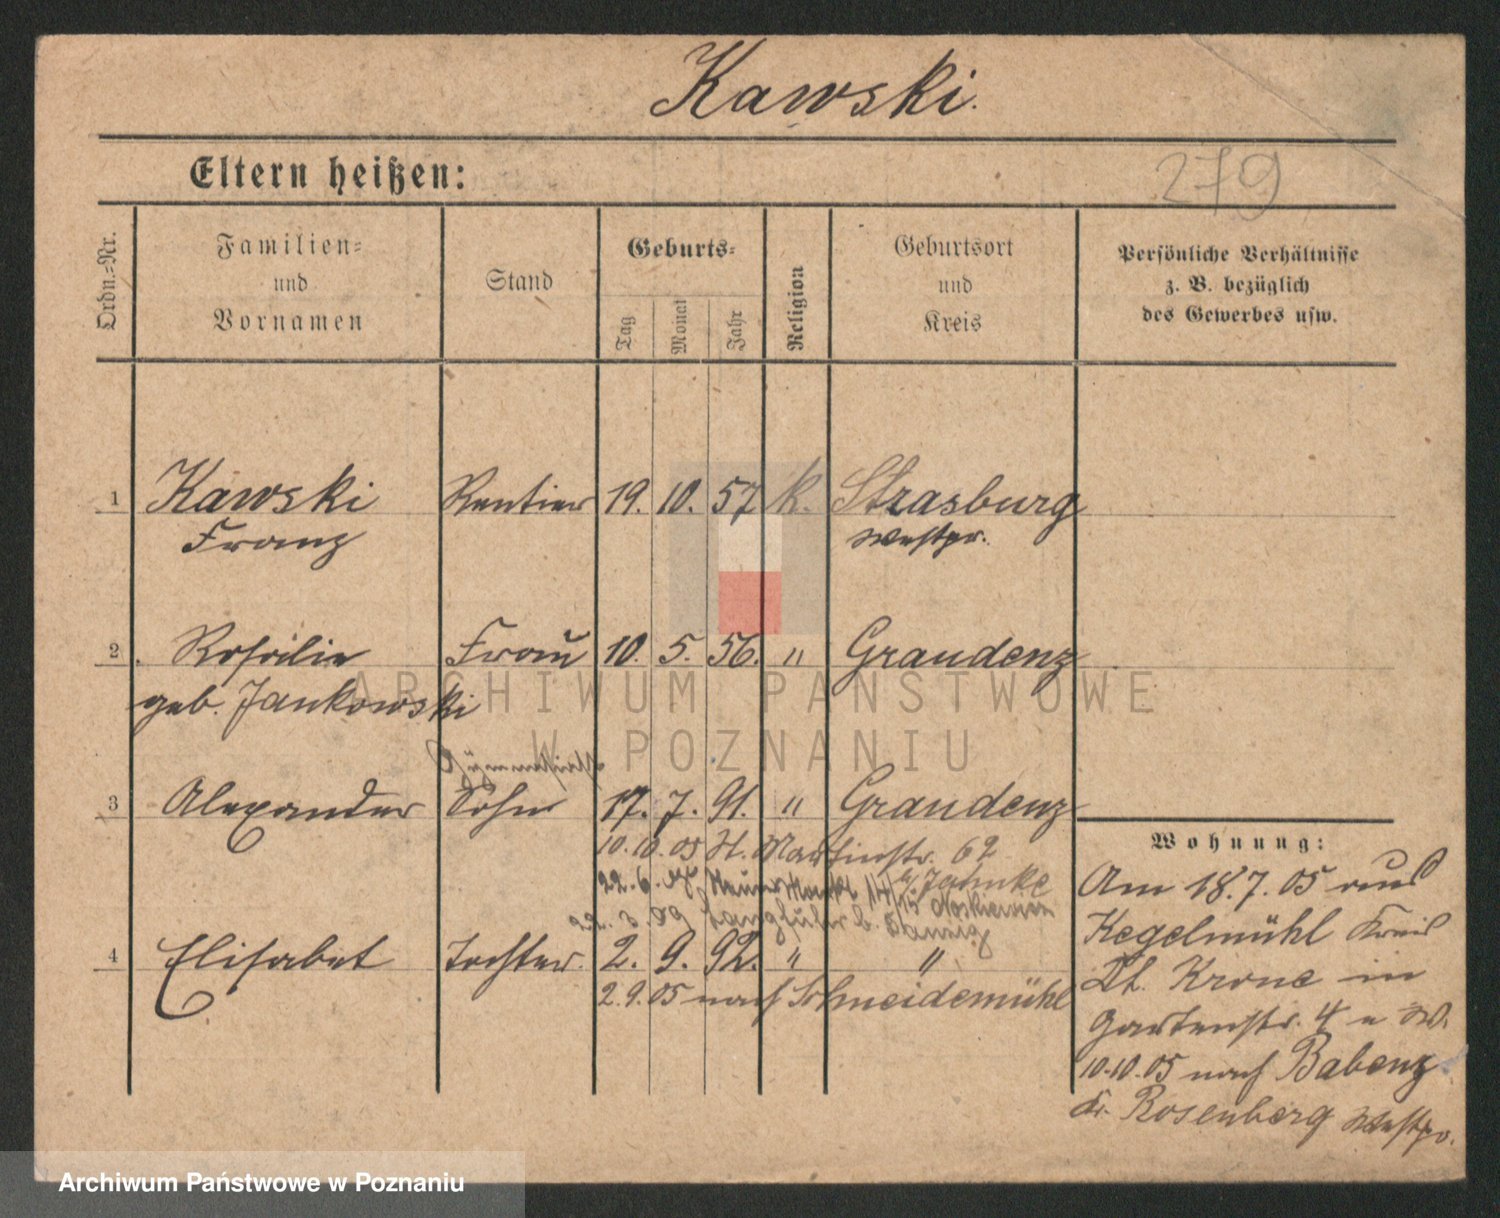 Kawski.
Eltern heißen:
279
Ordn.-Nr.
Familien-
und
Vornamen
Stand
Geburts-
Tag
Monat
Jahr
Religion
Geburtsort
und
Kreis
Persönliche Verhältnisse
z. B. bezüglich
des Gewerbes usw.
1 Kawski Rentier 19. 10. 57 k. Strasburg
Franz Westpr.
2 Rosalie Frau 10. 5. 56. " Graudenz
geb. Jankowski
Gymnasiast
3 Alexander Sohn 17. 7. 91. " Graudenz
10.10.05 St. Martinstr. 62
b/ Jahnke
22. 6. 07 Neuer Markt 14/15
22. 3. 09 Langfuhr b. Danzig
4 Elisabet Tochter. 2. 9. 92. " "
2.9.05 nach Schneidemühl
Wohnung:
Am 18.7.05 aus
Kegelmühl Kreis
Dt. Krone in
Gartenstr. 4 a W.
10.10.05 nach Babenz
Kr. Rosenberg Westpr.
ARCHIWUM PAŃSTWOWE
W POZNANIU
Archiwum Państwowe w Poznaniu